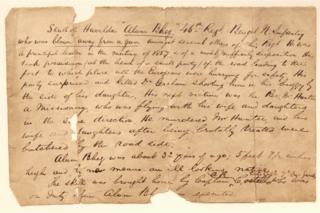 Skull of Havildar "Alum Bheg," 46th Regt Bengal N. Infantry
who was blown away from a gun amongst several others of his Regt. He was
a principal leader in the mutiny of 1857 & of a most ruffianly disposition. He
took possession (at the head of a small party) of the road leading to the
fort to which place all the Europeans were hurrying for safety. His
party surprised and killed Dr. Graham shooting him in his buggy by
the side of his daughter. His next victim was the Rev. Mr. Hunter
a Missionary, who was flying with his wife and daughters
in the same direction. He murdered Mr Hunter and his
wife and daughters after being brutally treated were
butchered by the road side.
Alum Bheg was about 32 years of age, 5 feet 7½ inches
high and by no means an ill looking native.
The skull was brought home by Captain
on duty when Alum Bheg was executed.